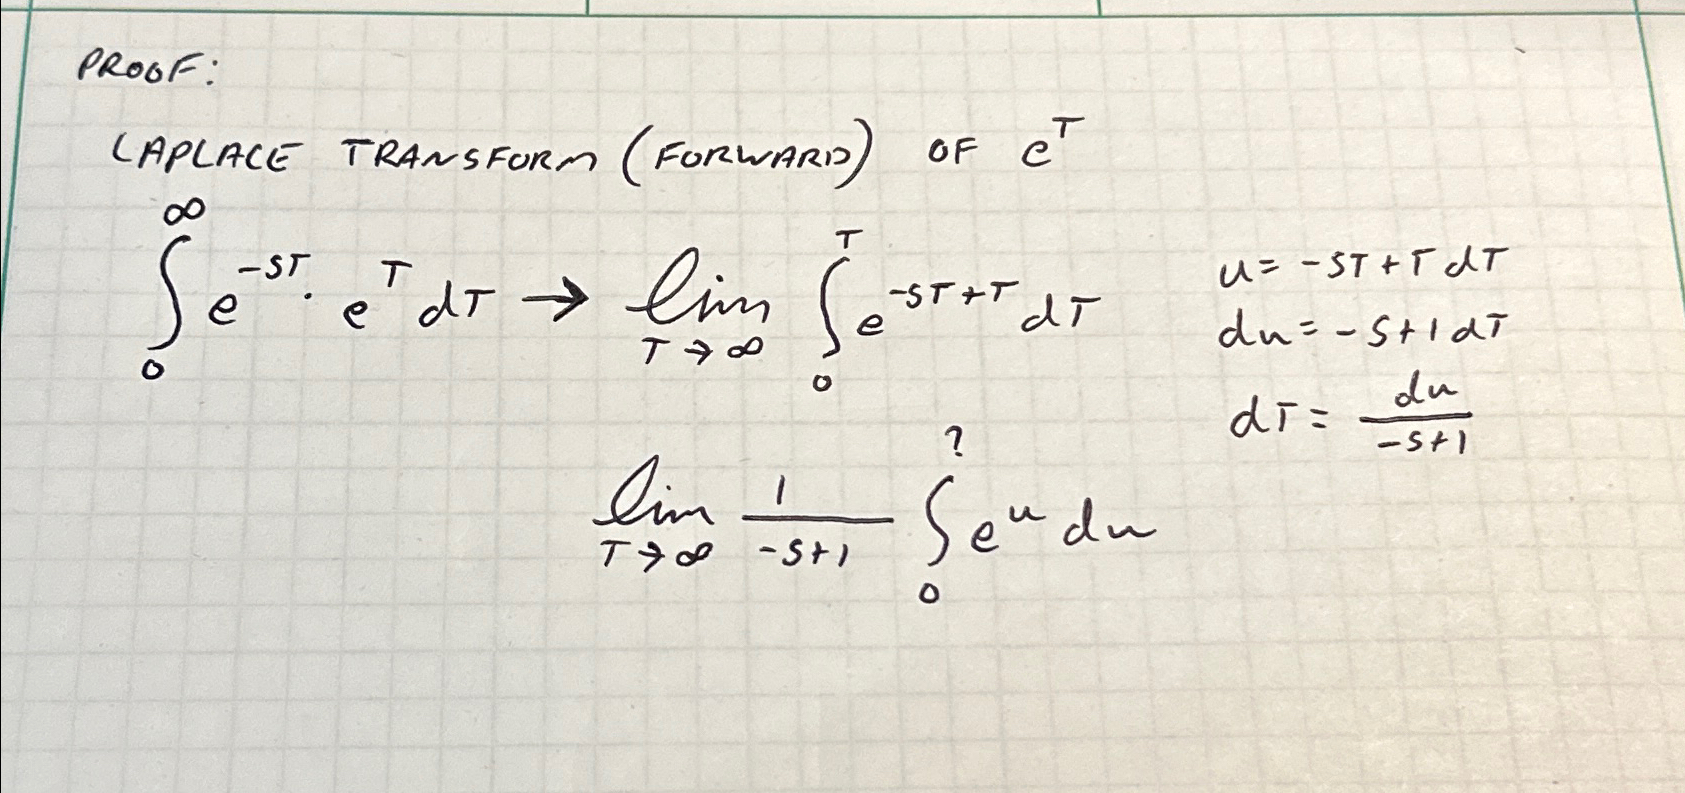 PROOF:
LAPLACE TRANSFORM (FORWARD) OF e^T
∫_0^∞ e^{-ST} · e^T dT → lim_{T→∞} ∫_0^T e^{-ST+T} dT
u = -ST + T dT
du = -S+1 dT
dT = du/(-S+1)
lim_{T→∞} 1/(-S+1) ∫_0^? e^u du